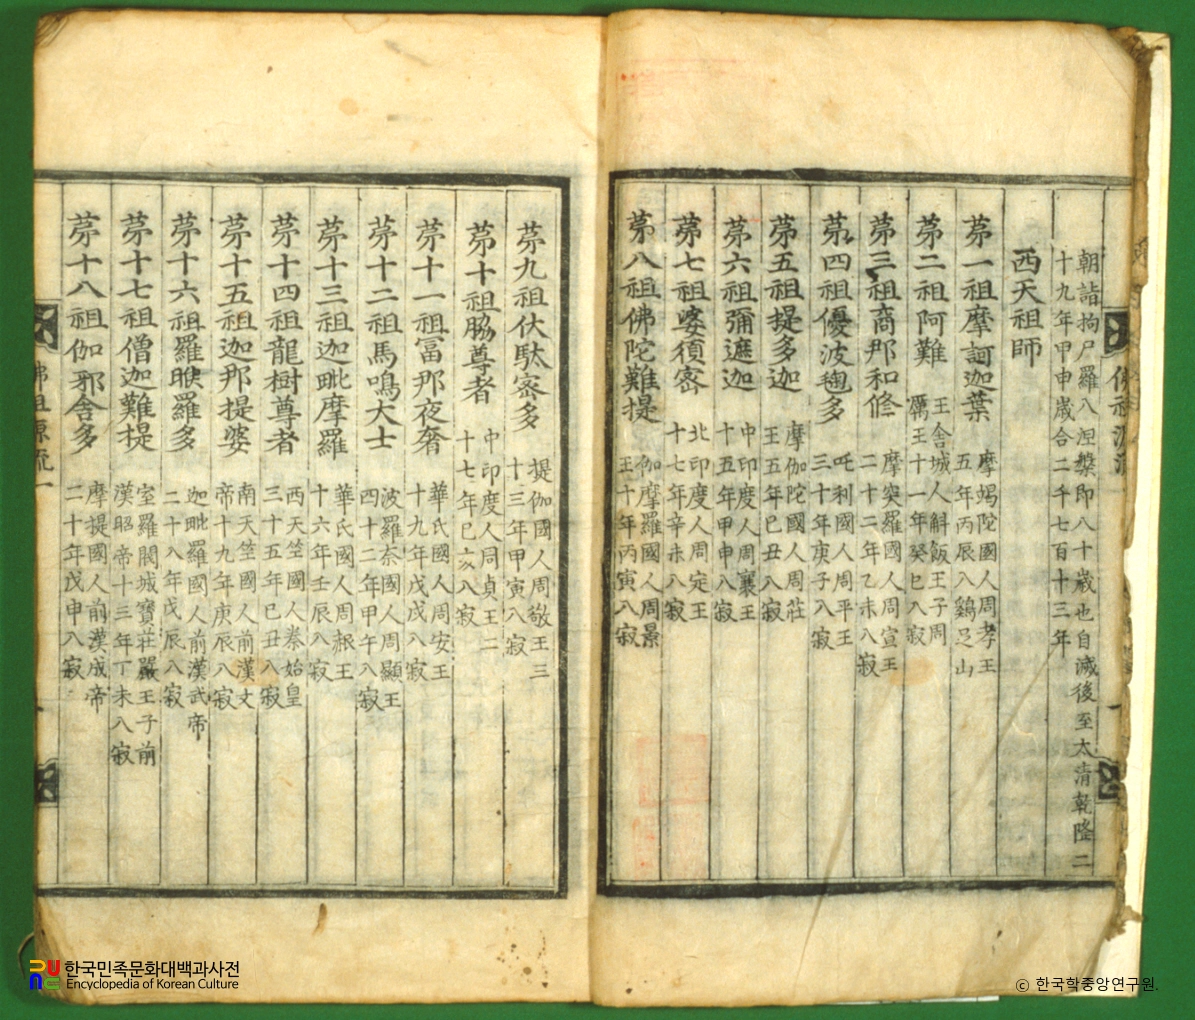 朝詣拘尸羅八涅槃即八十歲也自滅後至太清乾隆二
十九年甲申歲合二千七百十三年
西天祖師
苐一祖摩訶迦葉
摩竭陀國人周孝王
五年丙辰八鷄足山
苐二祖阿難
王舍城人斛飯王子周
厲王十一年癸巳八寂
苐三祖商那和修
摩突羅國人周宣王
二十二年乙未八寂
苐四祖優波毱多
吒利國人周平王
三十年庚子八寂
苐五祖提多迦
摩伽陀國人周莊
王五年己丑八寂
苐六祖彌遮迦
中印度人周襄王
十五年甲申八寂
苐七祖婆須宻
北印度人周定王
十七年辛未八寂
苐八祖佛陀難提
伽摩羅國人周景
王十年丙寅八寂
苐九祖伏馱宻多
提伽國人周敬王三
十三年甲寅八寂
苐十祖脇尊者
中印度人周貞王二
十七年己亥八寂
苐十一祖冨那夜奢
華氏國人周安王
十九年戊戌八寂
苐十二祖馬鳴大士
波羅奈國人周顯王
四十二年甲午八寂
苐十三祖迦毗摩羅
華氏國人周赧王
十六年壬辰八寂
苐十四祖龍樹尊者
西天竺國人秦始皇
三十五年己丑八寂
苐十五祖迦那提婆
南天竺國人前漢文
帝十九年庚辰八寂
苐十六祖羅睺羅多
迦毗羅國人前漢武帝
二十八年戊辰八寂
苐十七祖僧迦難提
室羅閥城寶莊嚴王子前
漢昭帝十三年丁未八寂
苐十八祖伽邪舍多
摩提國人前漢成帝
二十年戊申八寂
佛祖源流一
한국민족문화대백과사전
Encyclopedia of Korean Culture
ⓒ 한국학중앙연구원.